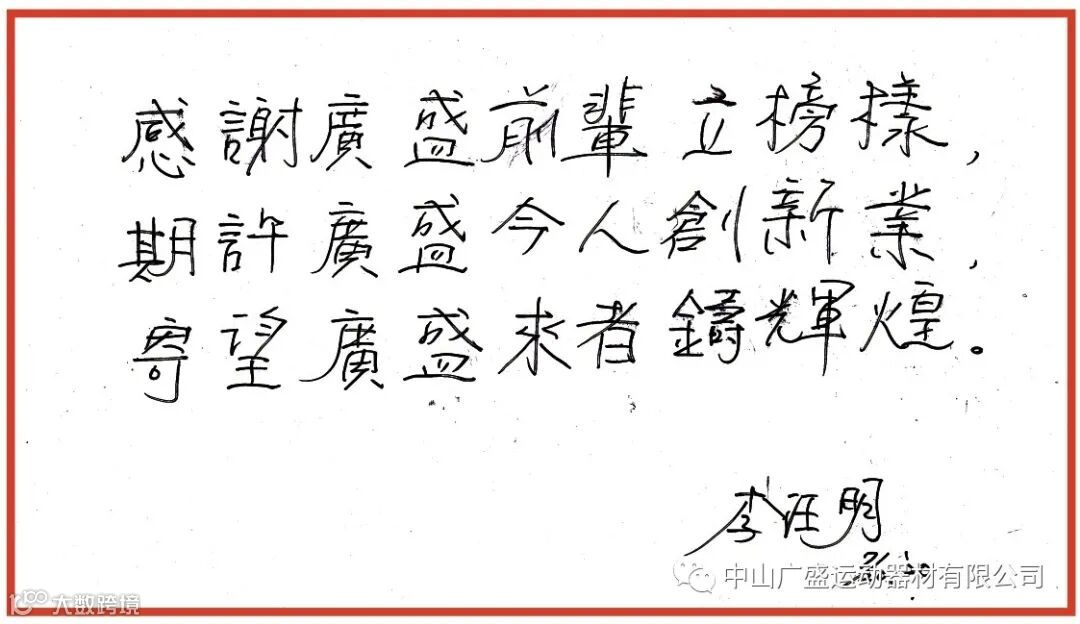 感謝廣盛前輩立榜樣，
期許廣盛今人創新業，
寄望廣盛來者鑄輝煌。
李廷明
中山广盛运动器材有限公司
大数跨境